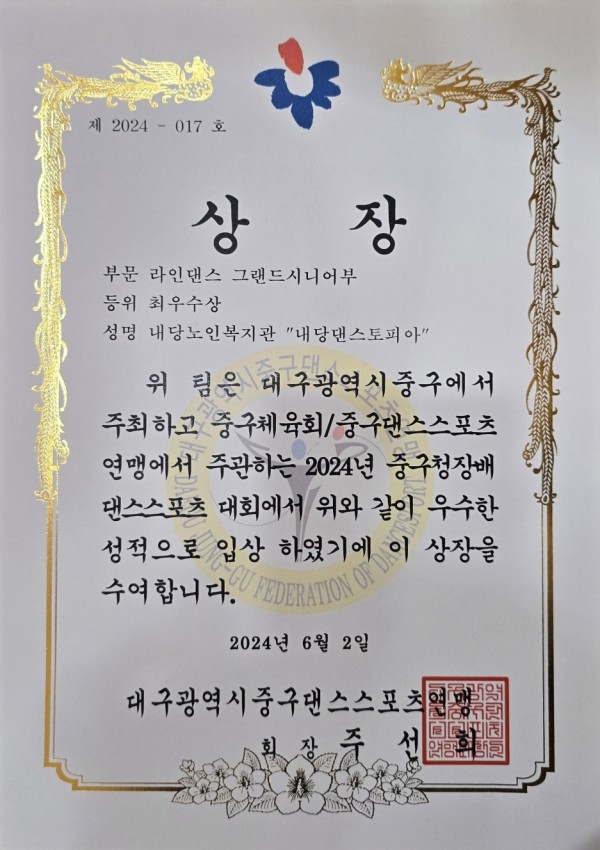 제 2024 - 017 호
상 장
부문 라인댄스 그랜드시니어부
등위 최우수상
성명 내당노인복지관 "내당댄스토피아"
위 팀은 대구광역시중구에서
주최하고 중구체육회/중구댄스스포츠
연맹에서 주관하는 2024년 중구청장배
댄스스포츠 대회에서 위와 같이 우수한
성적으로 입상 하였기에 이 상장을
수여합니다.
2024년 6월 2일
대구광역시중구댄스스포츠연맹
회 장 주 선 희